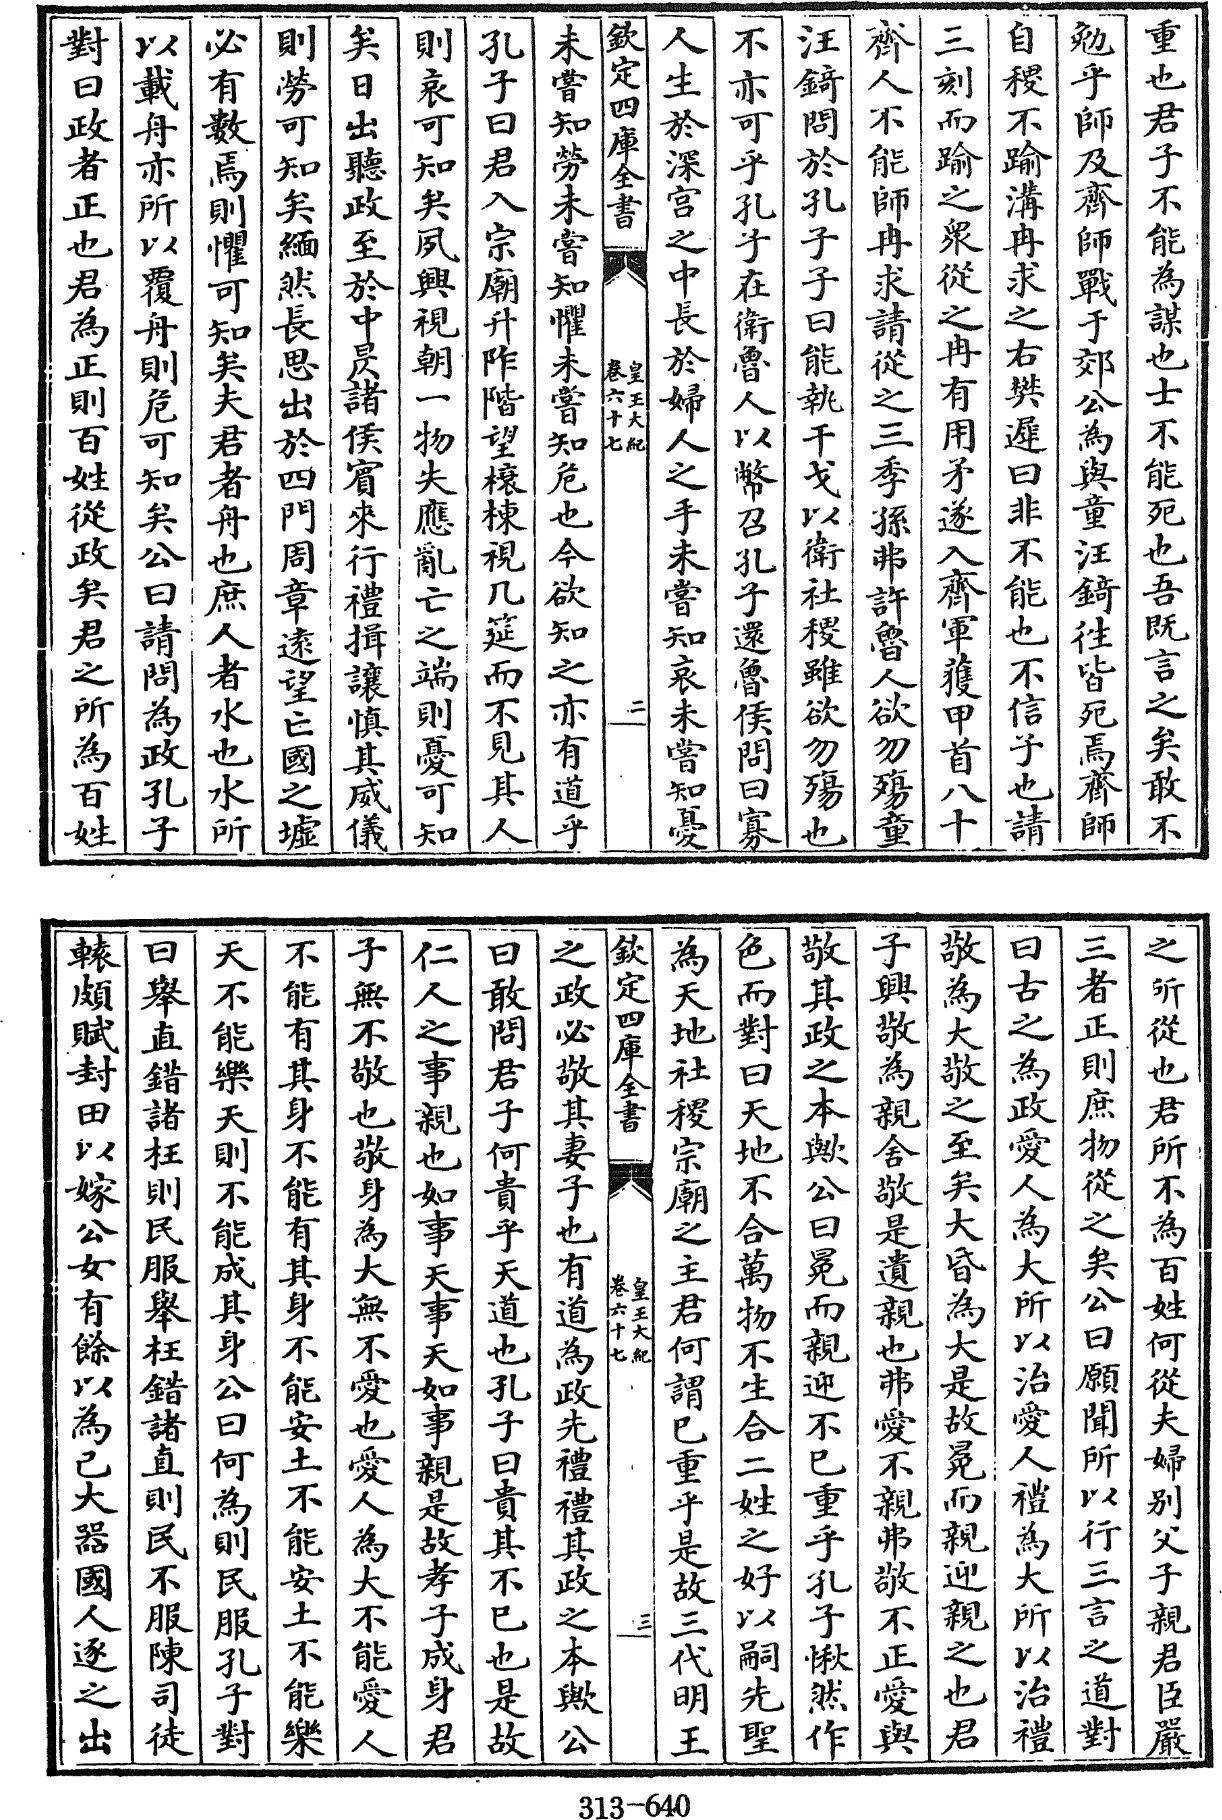 重也君子不能為謀也士不能死也吾既言之矣敢不
勉乎師及齊師戰于郊公為與童汪錡徃皆死焉齊師
自稷不踰溝冉求之右樊遲曰非不能也不信子也請
三刻而踰之衆從之冉有用矛遂入齊軍獲甲首八十
齊人不能師冉求請從之三季孫弗許魯人欲勿殤童
汪錡問於孔子子曰能執干戈以衛社稷雖欲勿殤也
不亦可乎孔子在衛魯人以幣召孔子還魯侯問曰寡
人生於深宫之中長於婦人之手未嘗知哀未嘗知憂
欽定四庫全書
皇王大紀
卷六十七
二
未嘗知勞未嘗知懼未嘗知危也今欲知之亦有道乎
孔子曰君入宗廟升阼階望榱棟視几筵而不見其人
則哀可知矣夙興視朝一物失應亂亡之端則憂可知
矣日出聽政至於中昃諸侯賓來行禮揖讓慎其威儀
則勞可知矣緬然長思出於四門周章逺望亡國之墟
必有數焉則懼可知矣夫君者舟也庶人者水也水所
以載舟亦所以覆舟則危可知矣公曰請問為政孔子
對曰政者正也君為正則百姓從政矣君之所為百姓
之所從也君所不為百姓何從夫婦别父子親君臣嚴
三者正則庶物從之矣公曰願聞所以行三言之道對
曰古之為政愛人為大所以治愛人禮為大所以治禮
敬為大敬之至矣大昏為大是故冕而親迎親之也君
子興敬為親舍敬是遺親也弗愛不親弗敬不正愛與
敬其政之本歟公曰冕而親迎不已重乎孔子愀然作
色而對曰天地不合萬物不生合二姓之好以嗣先聖
為天地社稷宗廟之主君何謂已重乎是故三代明王
欽定四庫全書
皇王大紀
卷六十七
三
之政必敬其妻子也有道為政先禮禮其政之本歟公
曰敢問君子何貴乎天道也孔子曰貴其不已也是故
仁人之事親也如事天事天如事親是故孝子成身君
子無不敬也敬身為大無不愛也愛人為大不能愛人
不能有其身不能有其身不能安土不能安土不能樂
天不能樂天則不能成其身公曰何為則民服孔子對
曰舉直錯諸枉則民服舉枉錯諸直則民不服陳司徒
轅頗賦封田以嫁公女有餘以為己大器國人逐之出
313-640